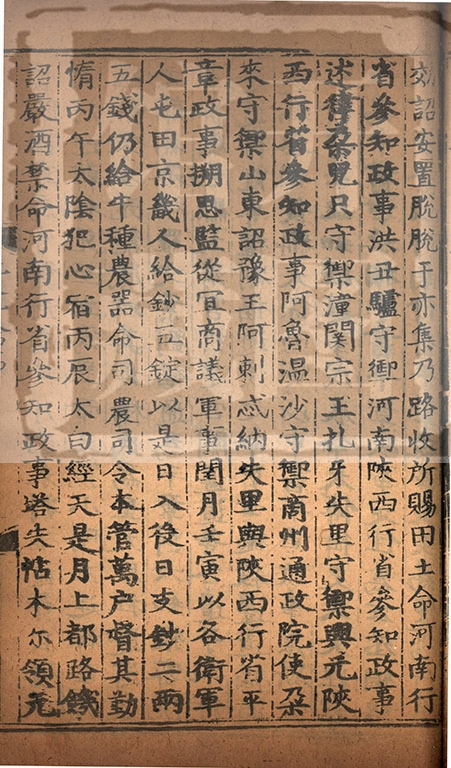 効詔安置脫脫于亦集乃路收所賜田土命河南行
省參知政事洪丑驢守禦河南陝西行省參知政事
述律朶兒只守禦潼關宗王扎牙失里守禦興元陝
西行省參知政事阿魯溫沙守禦商州通政院使朶
來守禦山東詔豫王阿剌忒納失里與陝西行省平
章政事搠思監從宜商議軍事閏月壬寅以各衛軍
人屯田京畿人給鈔五錠以是日入役日支鈔二兩
五錢仍給牛種農器命司農司令本管萬戶督其勤
惰丙午太陰犯心宿丙辰太白經天是月上都路饑
詔嚴酒禁命河南行省參知政事塔失帖木尔領元